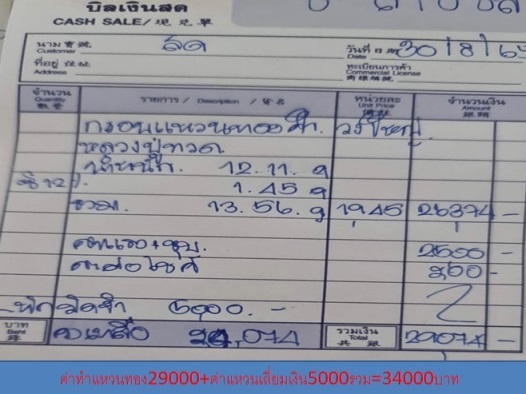 บิลเงินสด
CASH SALE/ 現兑單
นาม 寳號 Customer สด
วันที่ 日期 Date 30/8/65
ที่อยู่ 住址 Address
ทะเบียนการค้า Commercial License 商業牌號
จำนวน Quantity 數量 รายการ / Description / 貨名 หน่วยละ Unit Price 價銀 จำนวนเงิน Amount 銀碼
กรอบแหวนทอง
หลวงปู่ทวด
น้ำหนัก 12.11. g
1.45 g
รวม. 13.56. g 1945 26374 -
ค่าแรง+ชุบ. 2500 -
200 -
มัดจำ 5000. -
บาท Baht คงเหลือ 24,074 รวมเงิน Total 共銀 29074 -
ค่าทำแหวนทอง29000+ค่าแหวนเลี่ยมเงิน5000รวม=34000บาท